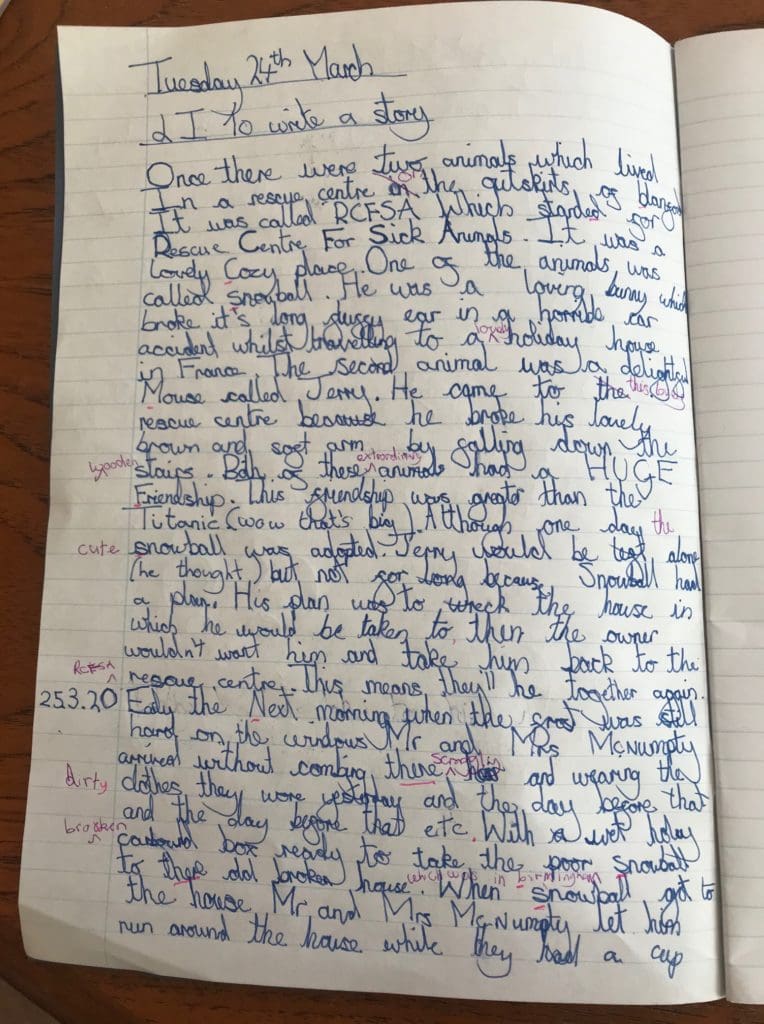 Tuesday 24th March
L I To write a story
Once there were two animals which lived
In a rescue centre on the outskirts of
It was called RCFSA Which standed for
Rescue Centre For Sick Animals. It was a
Lovely Cozy place. One of the animals was
called snowball. He was a loving bunny which
broke it's long fussy ear in a horrible car
accident whilst travelling to a lovely holiday house
in France. The second animal was a delightful
Mouse called Jerry. He came to the this busy
rescue centre because he broke his lovely
brown and soft arm by falling down the
wooden stairs. Both of these extraordinary animals had a HUGE
Friendship. This friendship was greater than the
Titanic (wow that's big). Although one day the
cute snowball was adopted. Jerry would be alone
(he thought) but not for long because Snowball had
a plan. His plan was to wreck the house in
which he would be taken to, then the owner
wouldn't want him and take him back to the
RCFSA rescue centre. This means they'll be together again.
25.3.20 Early the Next morning when the frost was still
hard on the windows Mr and Mrs McNumpty
arrived without combing there and wearing the
dirty clothes they wore yesterday and the day before that
and the day before that etc. With a wet holey
broken box ready to take the poor snowball
to there old broken house which was in birmingham. When snowball got to
the house Mr and Mrs McNumpty let him
run around the house while they had a cup